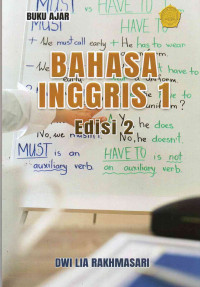 BUKU AJAR
MUST vs HAVE TO
+ We must call early + He has to wear
BAHASA
- We have to
INGGRIS 1
Edisi 2
he does.
No, we No, he doesn't.
MUST is an HAVE TO is not
auxiliary verb. an auxiliary verb.
DWI LIA RAKHMASARI